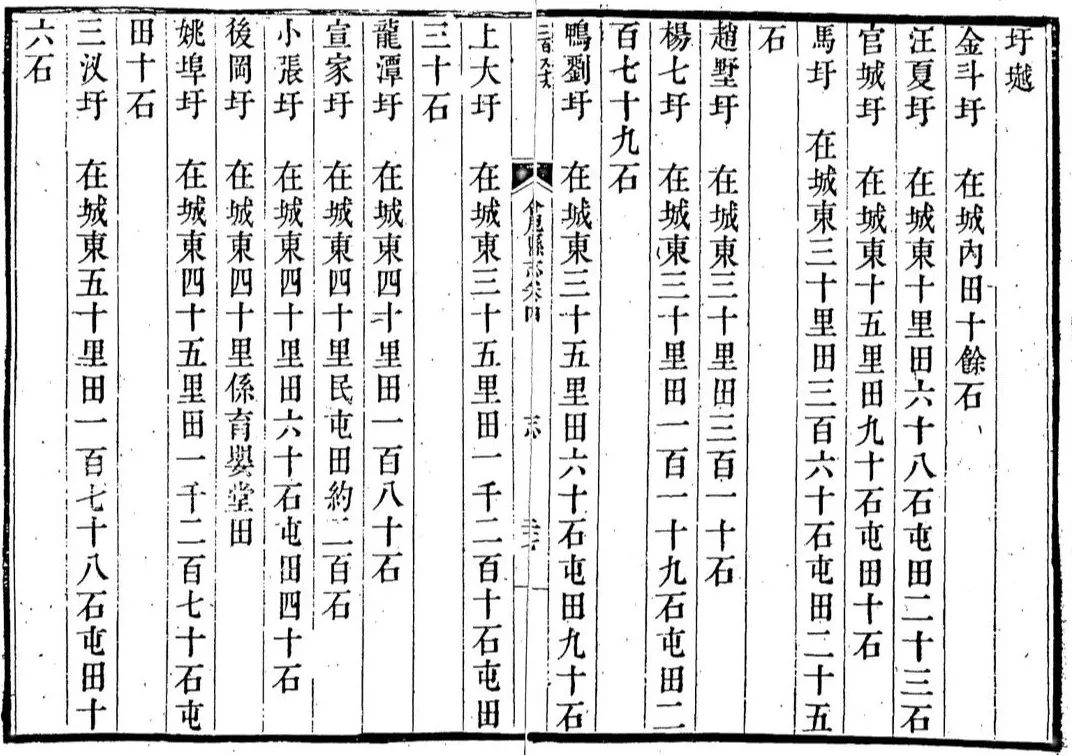 圩𡐤
金斗圩　在城內田十餘石
汪夏圩　在城東十里田六十八石屯田二十三石
官城圩　在城東十五里田九十石屯田十石
馬圩　在城東三十里田三百六十石屯田二十五
石
趙墅圩　在城東三十里田三百一十石
楊七圩　在城東三十里田一百一十九石屯田二
百七十九石
鴨劉圩　在城東三十五里田六十石屯田九十石
合肥縣志卷四
志
上大圩　在城東三十五里田一千二百十石屯田
三十石
龍潭圩　在城東四十里田一百八十石
宣家圩　在城東四十里民屯田約二百石
小張圩　在城東四十里田六十石屯田四十石
後岡圩　在城東四十里係育嬰堂田
姚埠圩　在城東四十五里田一千二百七十石屯
田十石
三汊圩　在城東五十里田一百七十八石屯田十
六石